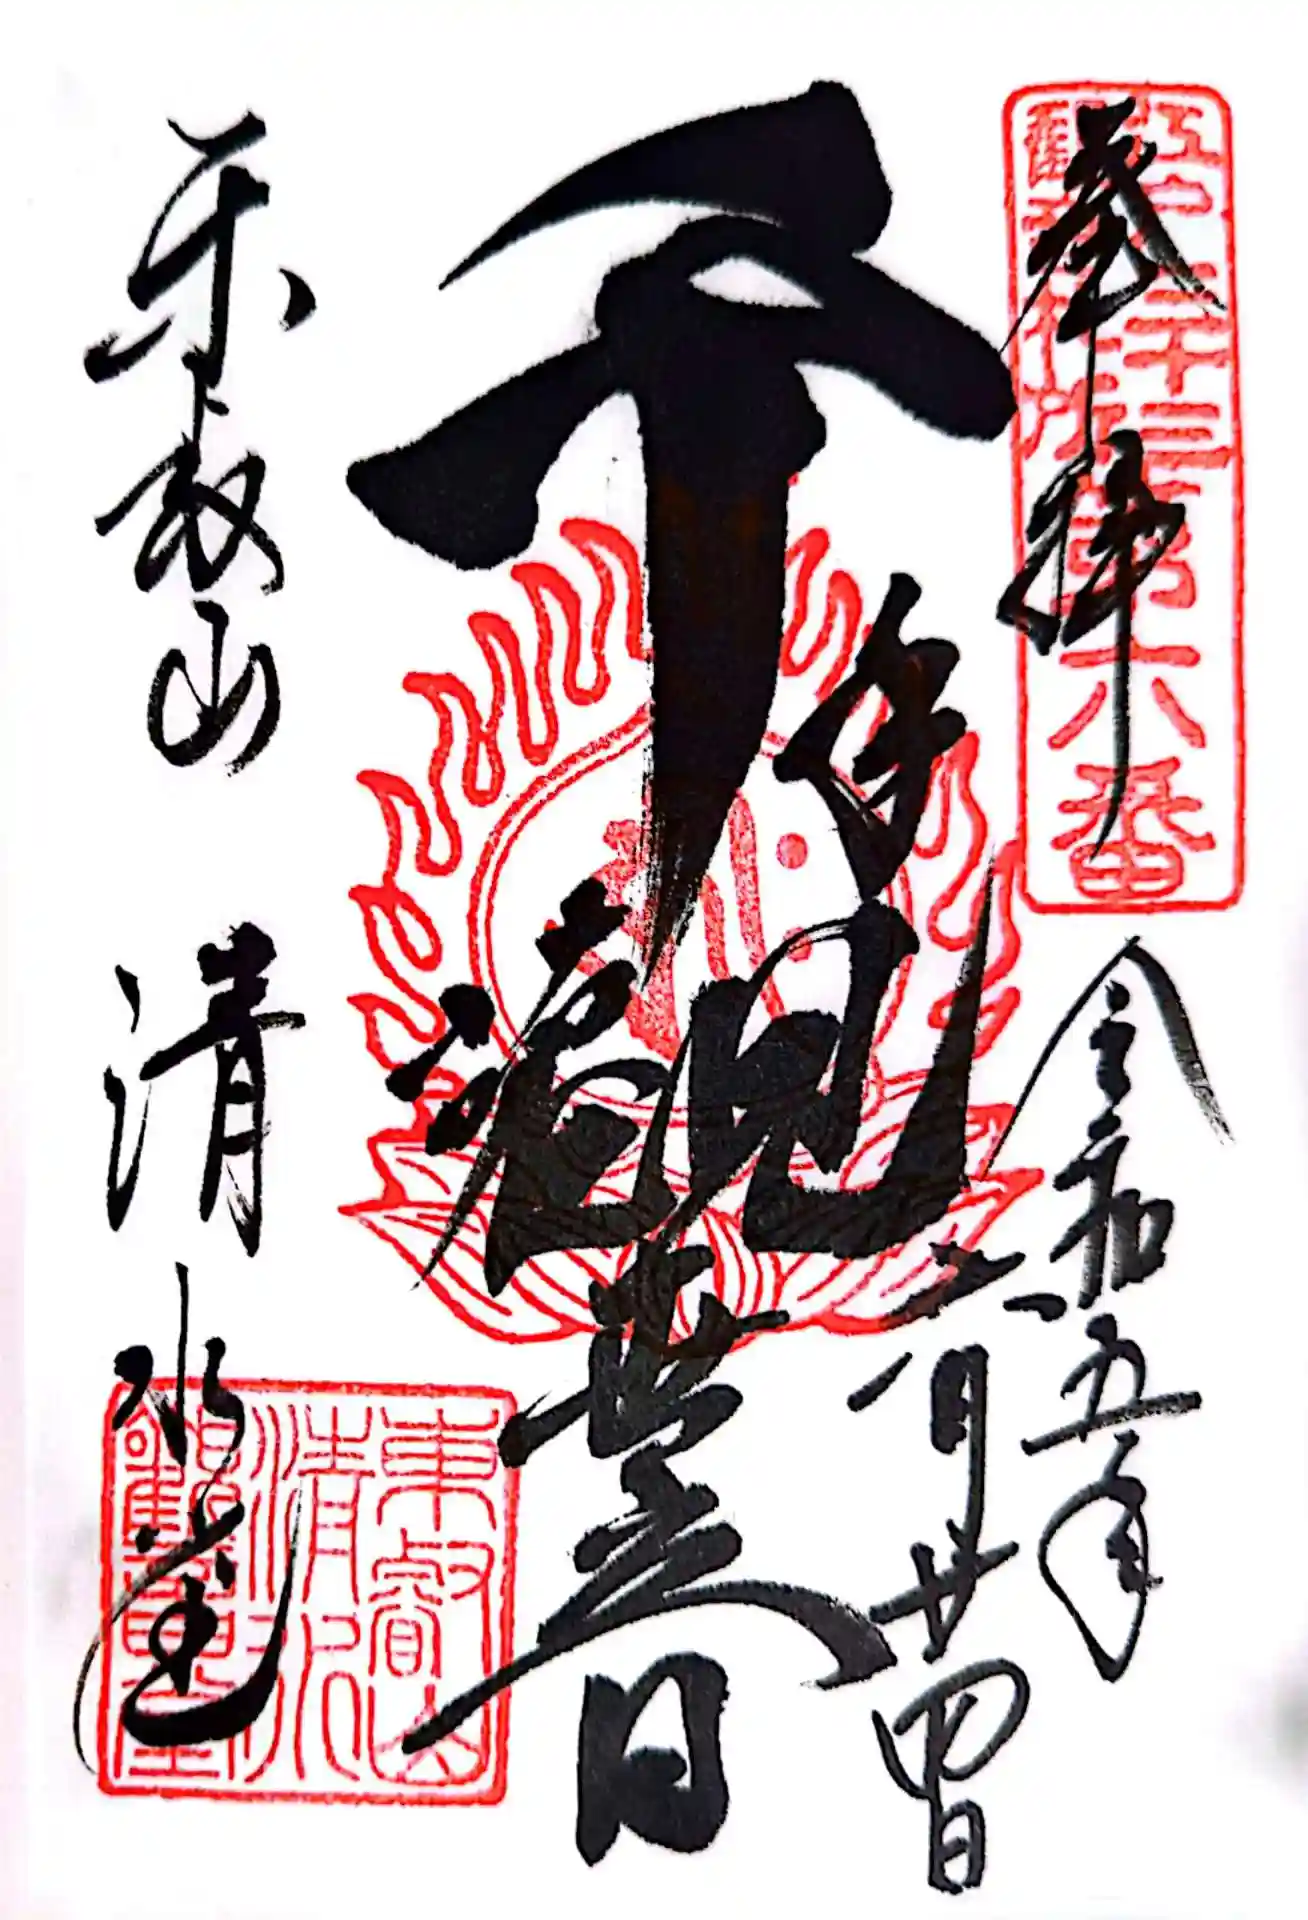 奉拝
江戸三十三
観音札所第六番
令和五年
六月廿四日
千手観世音
東叡山
清水堂
東叡山
清水
観音堂